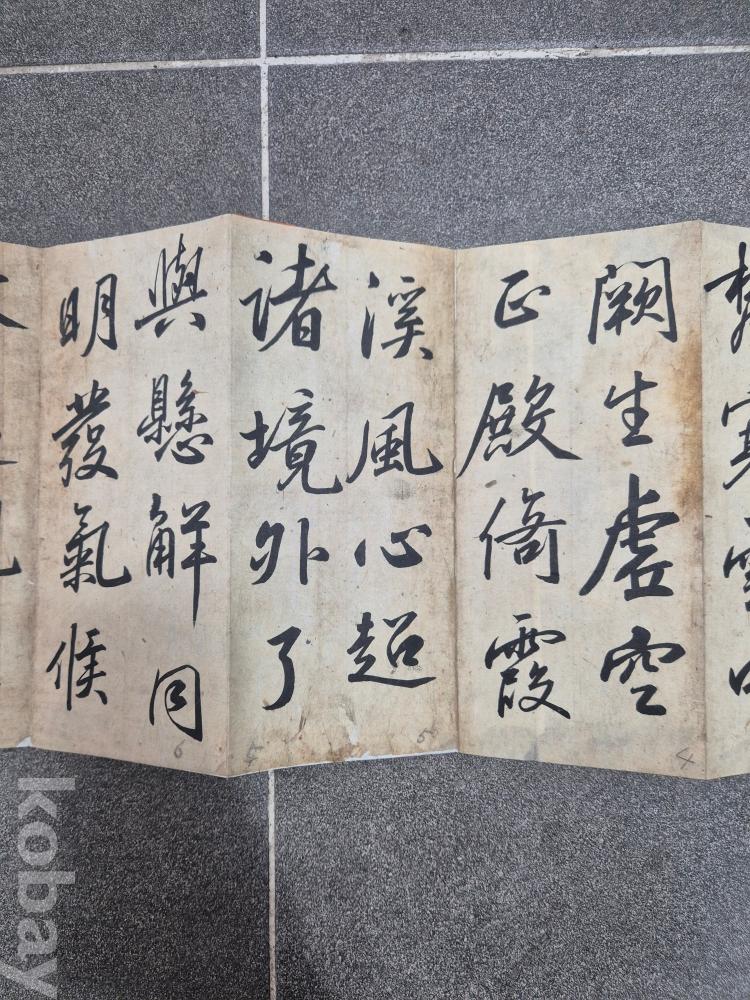 闕生虛空
正殿倚霞
溪風心超
諸境外了
與懸解同
明發氣候
4
5
5
6
kobay